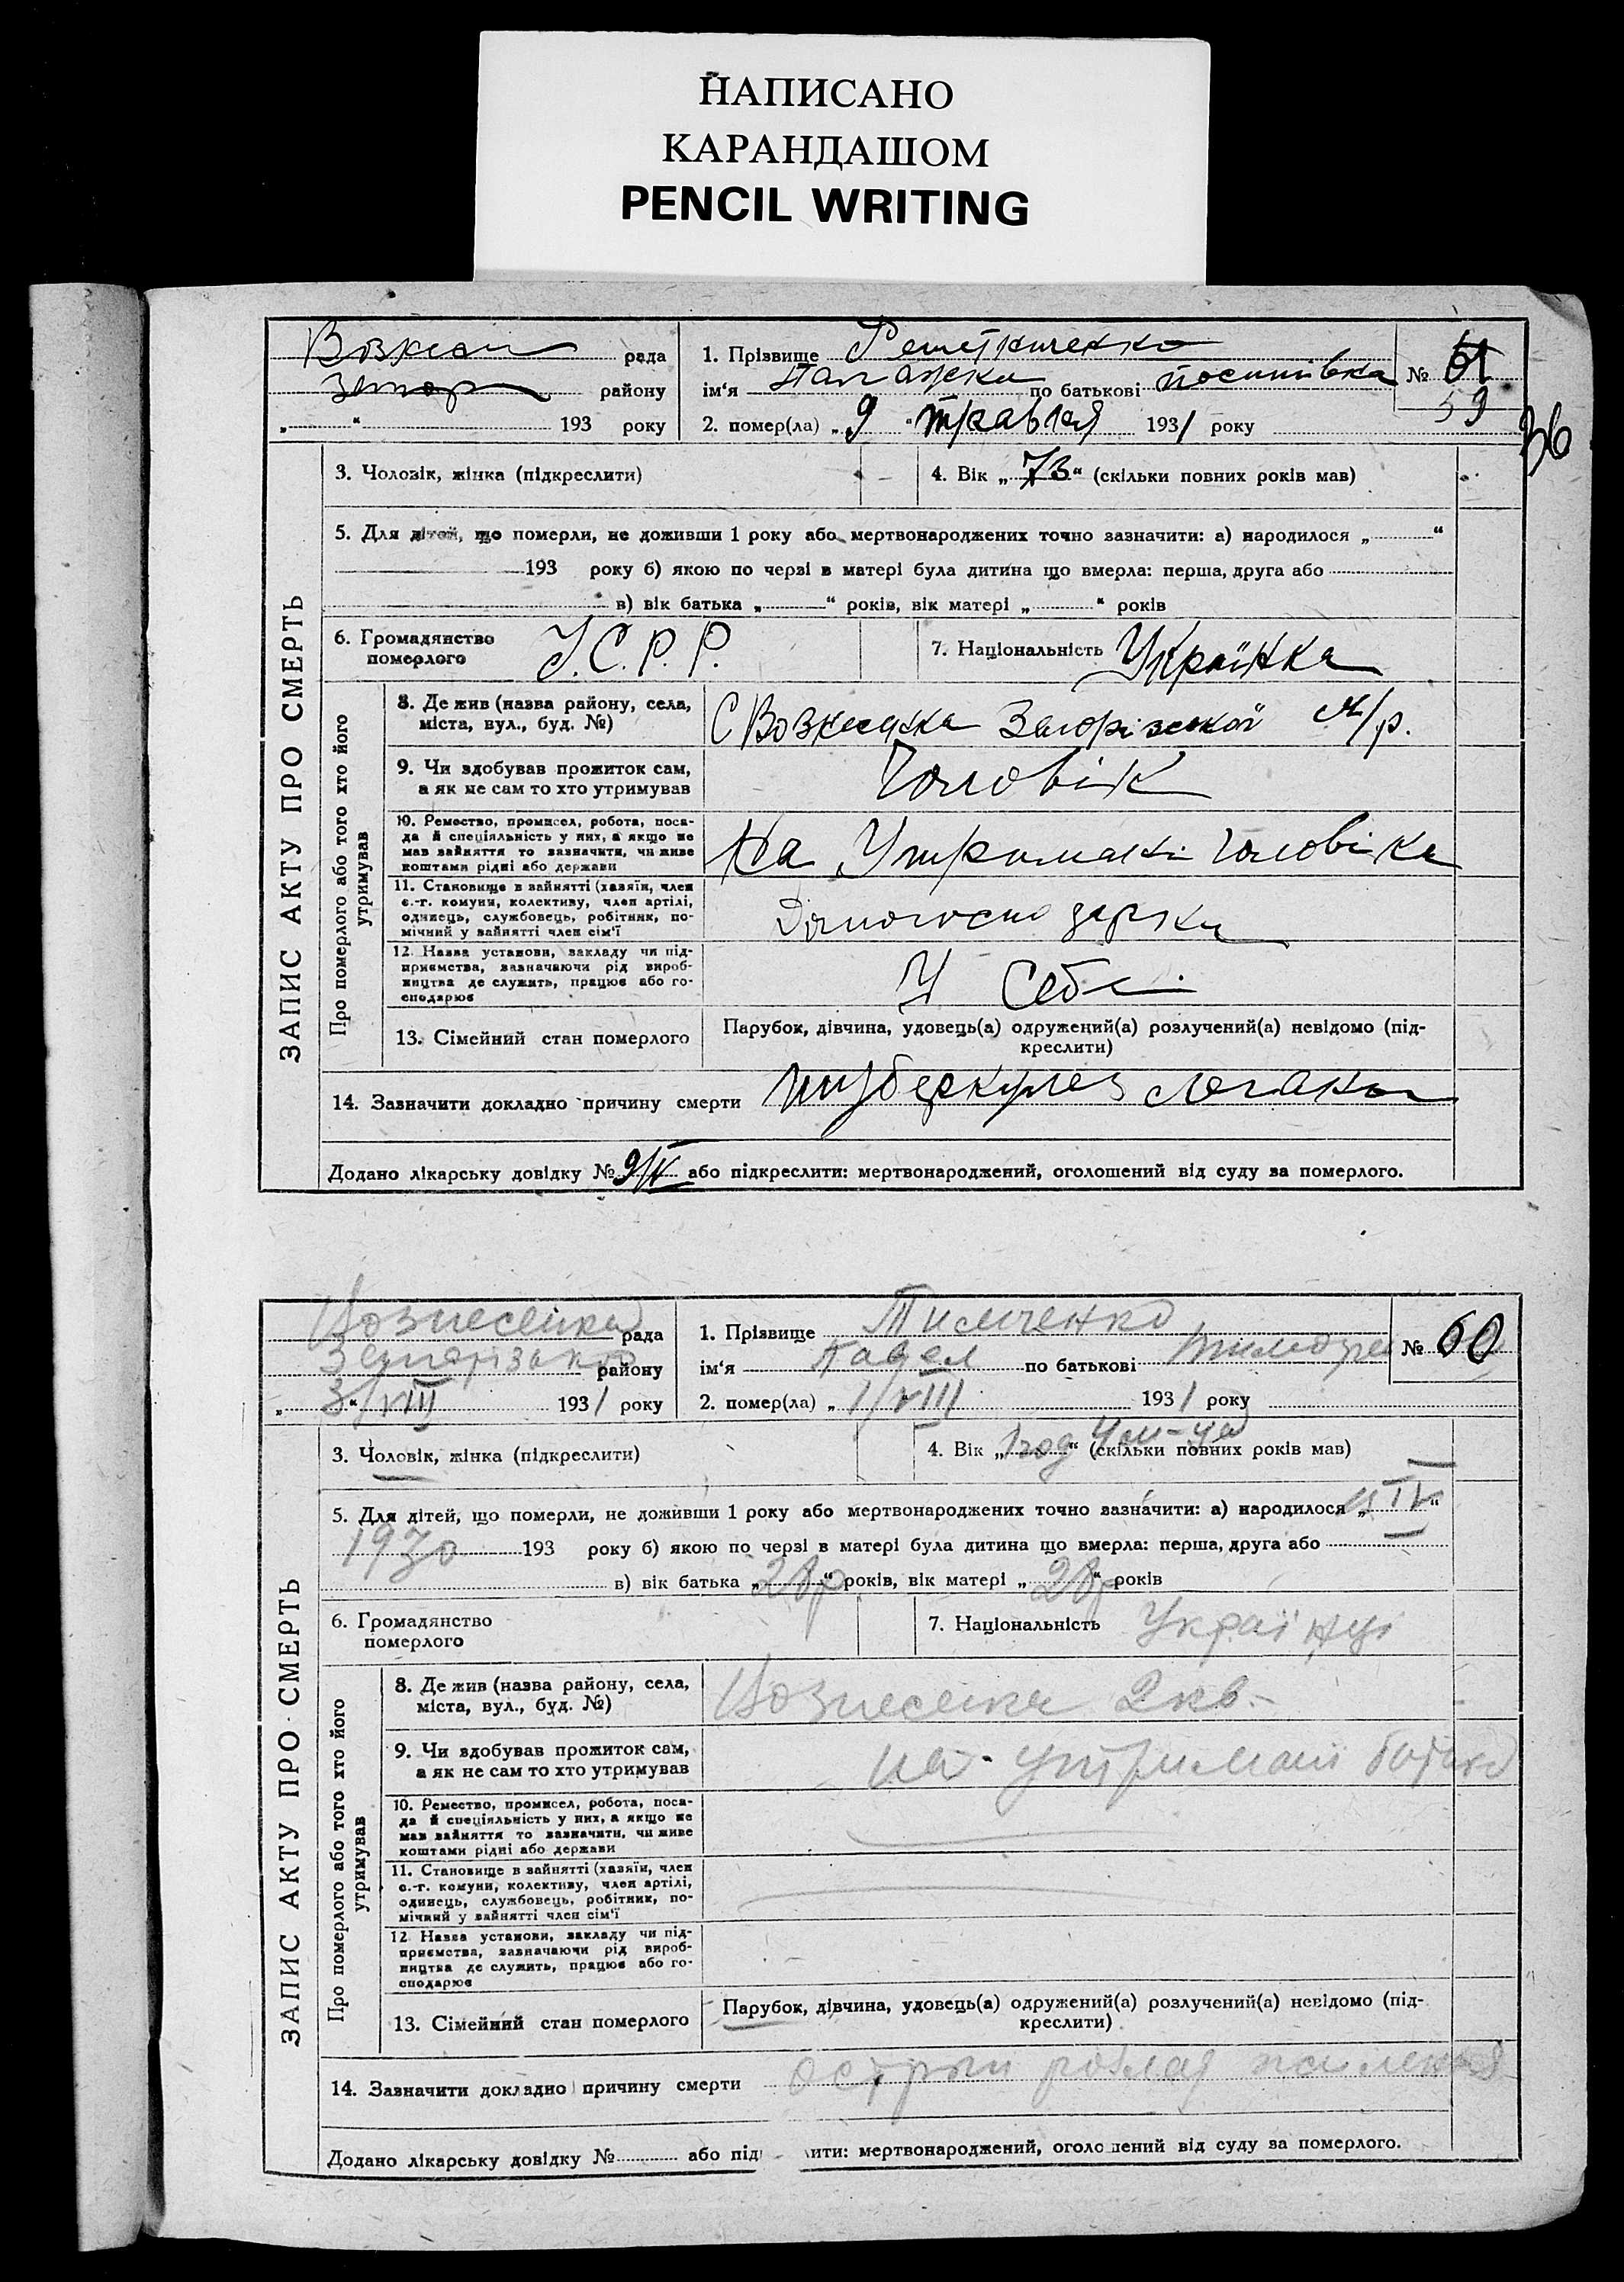 НАПИСАНО
КАРАНДАШОМ
PENCIL WRITING
рада
району
„ “ 193 року
1. Прізвище
ім‘я по батькові
2. помер(ла) „9“ травня 1931 року
№ 61
59
36
ЗАПИС АКТУ ПРО СМЕРТЬ
3. Чоловік, жінка (підкреслити)
4. Вік „73“ (скільки повних років мав)
5. Для дітей, що померли, не доживши 1 року або мертвонароджених точно зазначити: а) народилося „ “
193 року б) якою по черзі в матері була дитина що вмерла: перша, друга або
в) вік батька „ “ років, вік матері „ “ років
6. Громадянство померлого У.С.Р.Р.
7. Національність Українка
Про померлого або того хто його утримував
8. Де жив (назва району, села,
міста, вул., буд. №)
С Вознесенка Запорізької м/р.
9. Чи здобував прожиток сам,
а як не сам то хто утримував
Чоловік
10. Ремество, промисел, робота, поса-
да й спеціяльність у них, а якщо не
мав зайняття то зазначити, чи живе
коштами рідні або держави
На Утриманні Чоловіка
11. Становище в зайнятті (хазяїн, член
с.-г. комуни, колективу, член артілі,
одинець, службовець, робітник, по-
мічний у зайнятті член сім‘ї
12. Назва установи, закладу чи під-
приємства, зазначаючи рід вироб-
ництва де служить, працює або го-
сподарює
У Себе
13. Сімейний стан померлого
Парубок, дівчина, удовець(а) одружений(а) розлучений(а) невідомо (під-
креслити)
14. Зазначити докладно причину смерти туберкулез
Додано лікарську довідку № 9/V або підкреслити: мертвонароджений, оголошений від суду за померлого.
Вознесенка рада
району
„3“ VIII 1931 року
1. Прізвище Тимченко
ім‘я Павел по батькові
2. помер(ла) „1/VIII 1931 року
№ 60
ЗАПИС АКТУ ПРО СМЕРТЬ
3. Чоловік, жінка (підкреслити)
4. Вік „1 год“ (скільки повних років мав)
5. Для дітей, що померли, не доживши 1 року або мертвонароджених точно зазначити: а) народилося „ IV “
1930 193 року б) якою по черзі в матері була дитина що вмерла: перша, друга або
в) вік батька „28р“ років, вік матері „28р“ років
6. Громадянство померлого
7. Національність Українці
Про померлого або того хто його утримував
8. Де жив (назва району, села,
міста, вул., буд. №)
Вознесенка 2 кв.
9. Чи здобував прожиток сам,
а як не сам то хто утримував
на утримані батька
10. Ремество, промисел, робота, поса-
да й спеціяльність у них, а якщо не
мав зайняття то зазначити, чи живе
коштами рідні або держави
11. Становище в зайнятті (хазяїн, член
с.-г. комуни, колективу, член артілі,
одинець, службовець, робітник, по-
мічний у зайнятті член сім‘ї
12 Назва установи, закладу чи під-
приємства, зазначаючи рід вироб-
ництва де служить, працює або го-
сподарює
13. Сімейний стан померлого
Парубок, дівчина, удовець(а) одружений(а) розлучений(а) невідомо (під-
креслити)
14. Зазначити докладно причину смерти
Додано лікарську довідку № або під ити: мертвонароджений, оголо ений від суду за померлого.